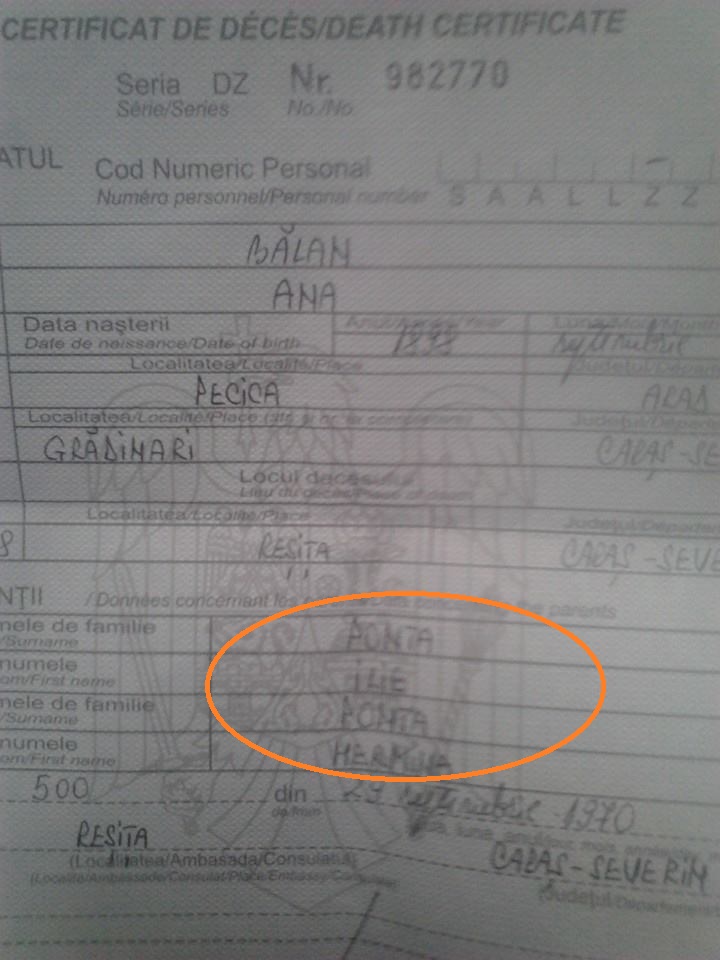 CERTIFICAT DE DÉCÈS/DEATH CERTIFICATE
Seria DZ Nr. 982770
Série/Series No./No.
ATUL Cod Numeric Personal
Numéro personnel/Personal number S A A L L Z Z
BĂLAN
ANA
Data naşterii Anul/Année/Year Luna/Mois/Month
Date de naissance/Date of birth 1898 septembrie
Localitatea/Localité/Place Judeţul/Départ
PECICA ARAD
Localitatea/Localité/Place Judeţul/Départ
GRĂDINARI CARAŞ-SE
Locul decesului
Lieu du décès/Place of death
Localitatea/Localité/Place Judeţul/Départe
8 REŞIŢA CARAŞ-SEVE
NŢII /Données concernant les parents/Data concerning the parents
mele de familie PONTA
/Surname
numele ILIE
om/First name
mele de familie PONTA
/Surname
numele
om/First name
500 din 29 septembrie 1970
du/from
REŞIŢA CARAŞ-SEVERIN
(Localitatea/Ambasada/Consulatul)
(Localité/Ambassade/Consulat/Place/Embassy/Consulate) (Judeţul/Département